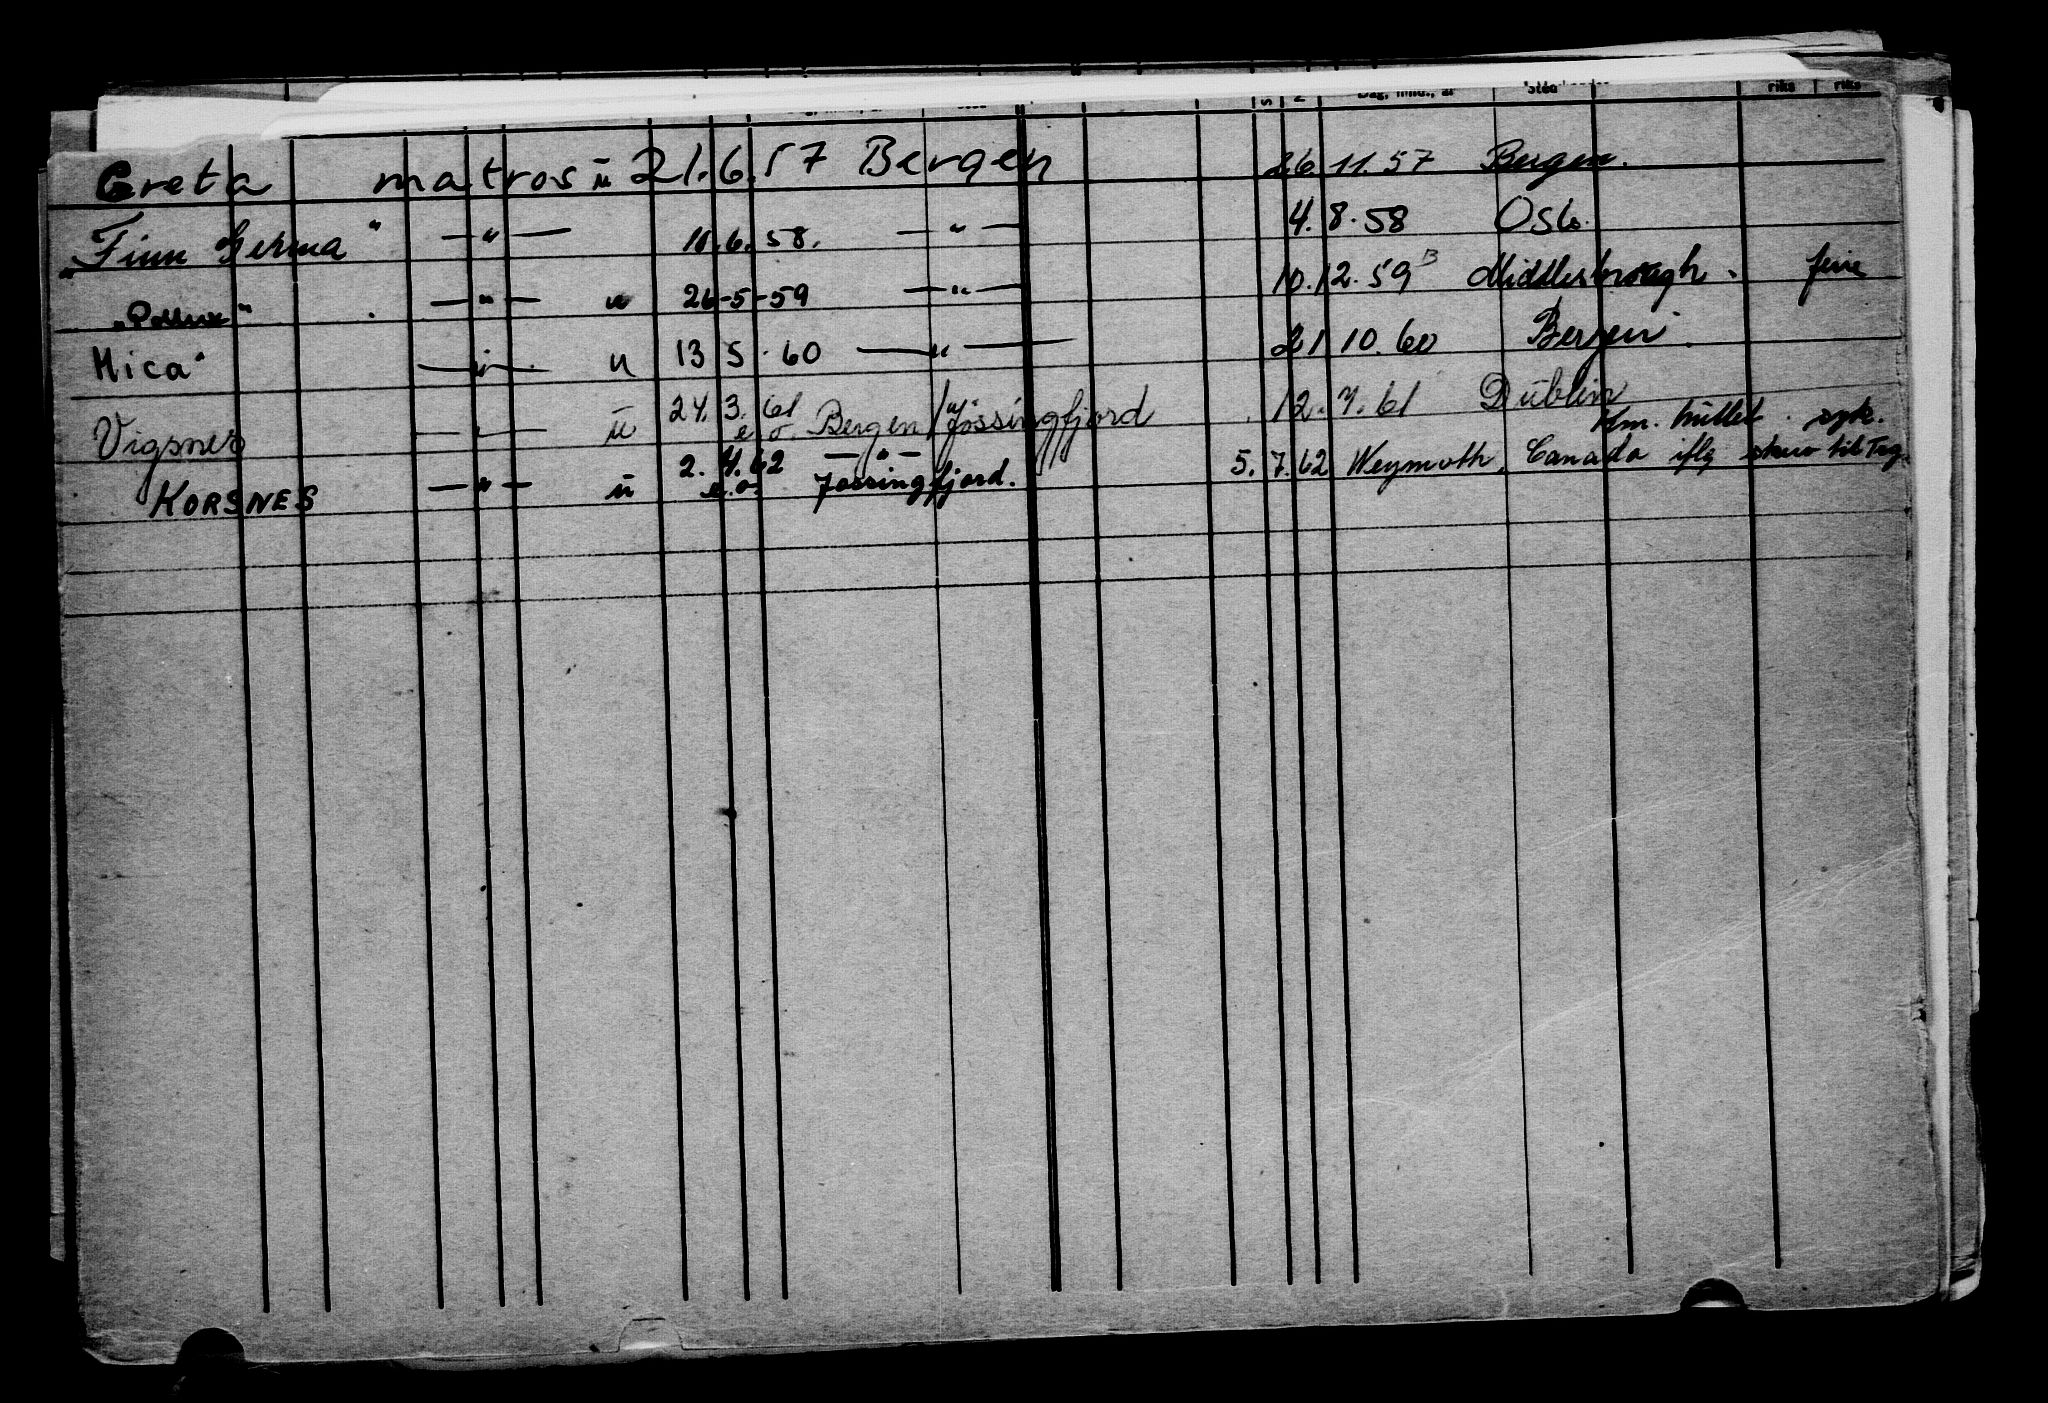 Dag, mnd., år riks riks
Greta matros ū 21.6.57 Bergen 26.11.57 Bergen.
"Finn " — " — 10.6.58. — " — 4.8.58 Oslo.
"Pollux" — " — u 26-5-59 — " — 10.12.59 Middlesbrough. ferie
Mica" — " — u 13 5.60 — " — 21.10.60 Bergen.
Vigsnes — " — ū 24.3.61 Bergen/Jøssingfjord 12.7.61 Dublin
e.o. syk.
KORSNES — " — ū 2.4.62 — " — 5.7.62 Weymoth, Canada iflg skriv til Trg.
e.o. Jøssingfjord.